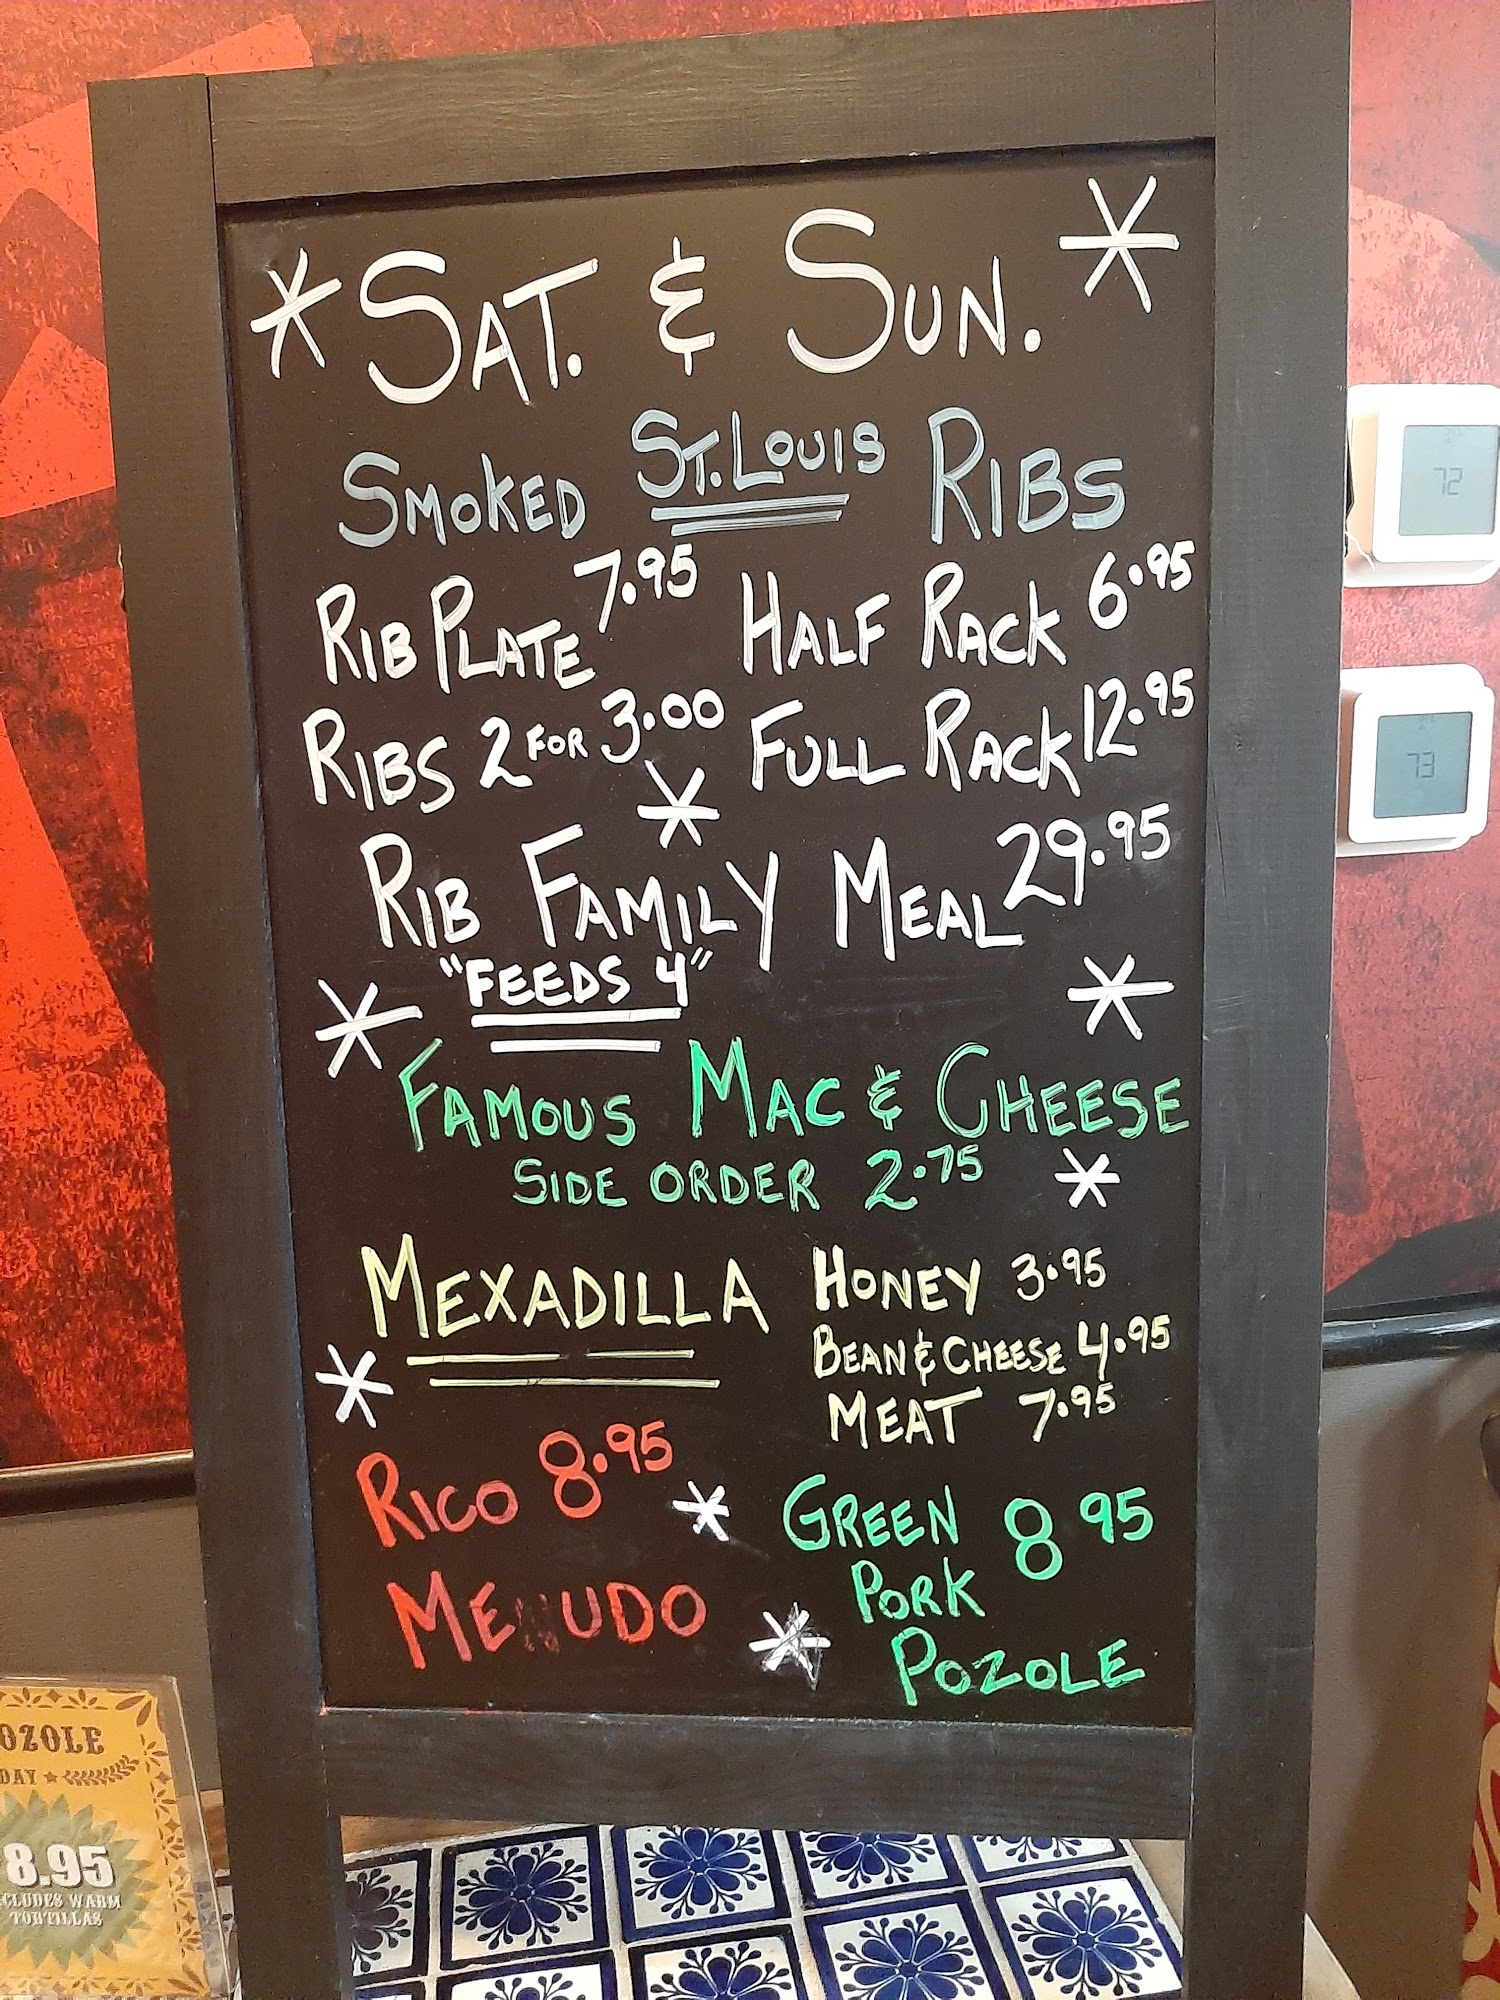 * SAT. & SUN. *
SMOKED ST. LOUIS RIBS
RIB PLATE 7.95 HALF RACK 6.95
RIBS 2 FOR 3.00 FULL RACK 12.95
*
RIB FAMILY MEAL 29.95
"FEEDS 4"
* *
FAMOUS MAC & CHEESE
SIDE ORDER 2.75 *
MEXADILLA HONEY 3.95
BEAN & CHEESE 4.95
* MEAT 7.95
RICO 8.95 * GREEN 8 95
MENUDO PORK
* POZOLE
OZOLE
DAY
8.95
CLUDES WARM
TORTILLAS
72
73